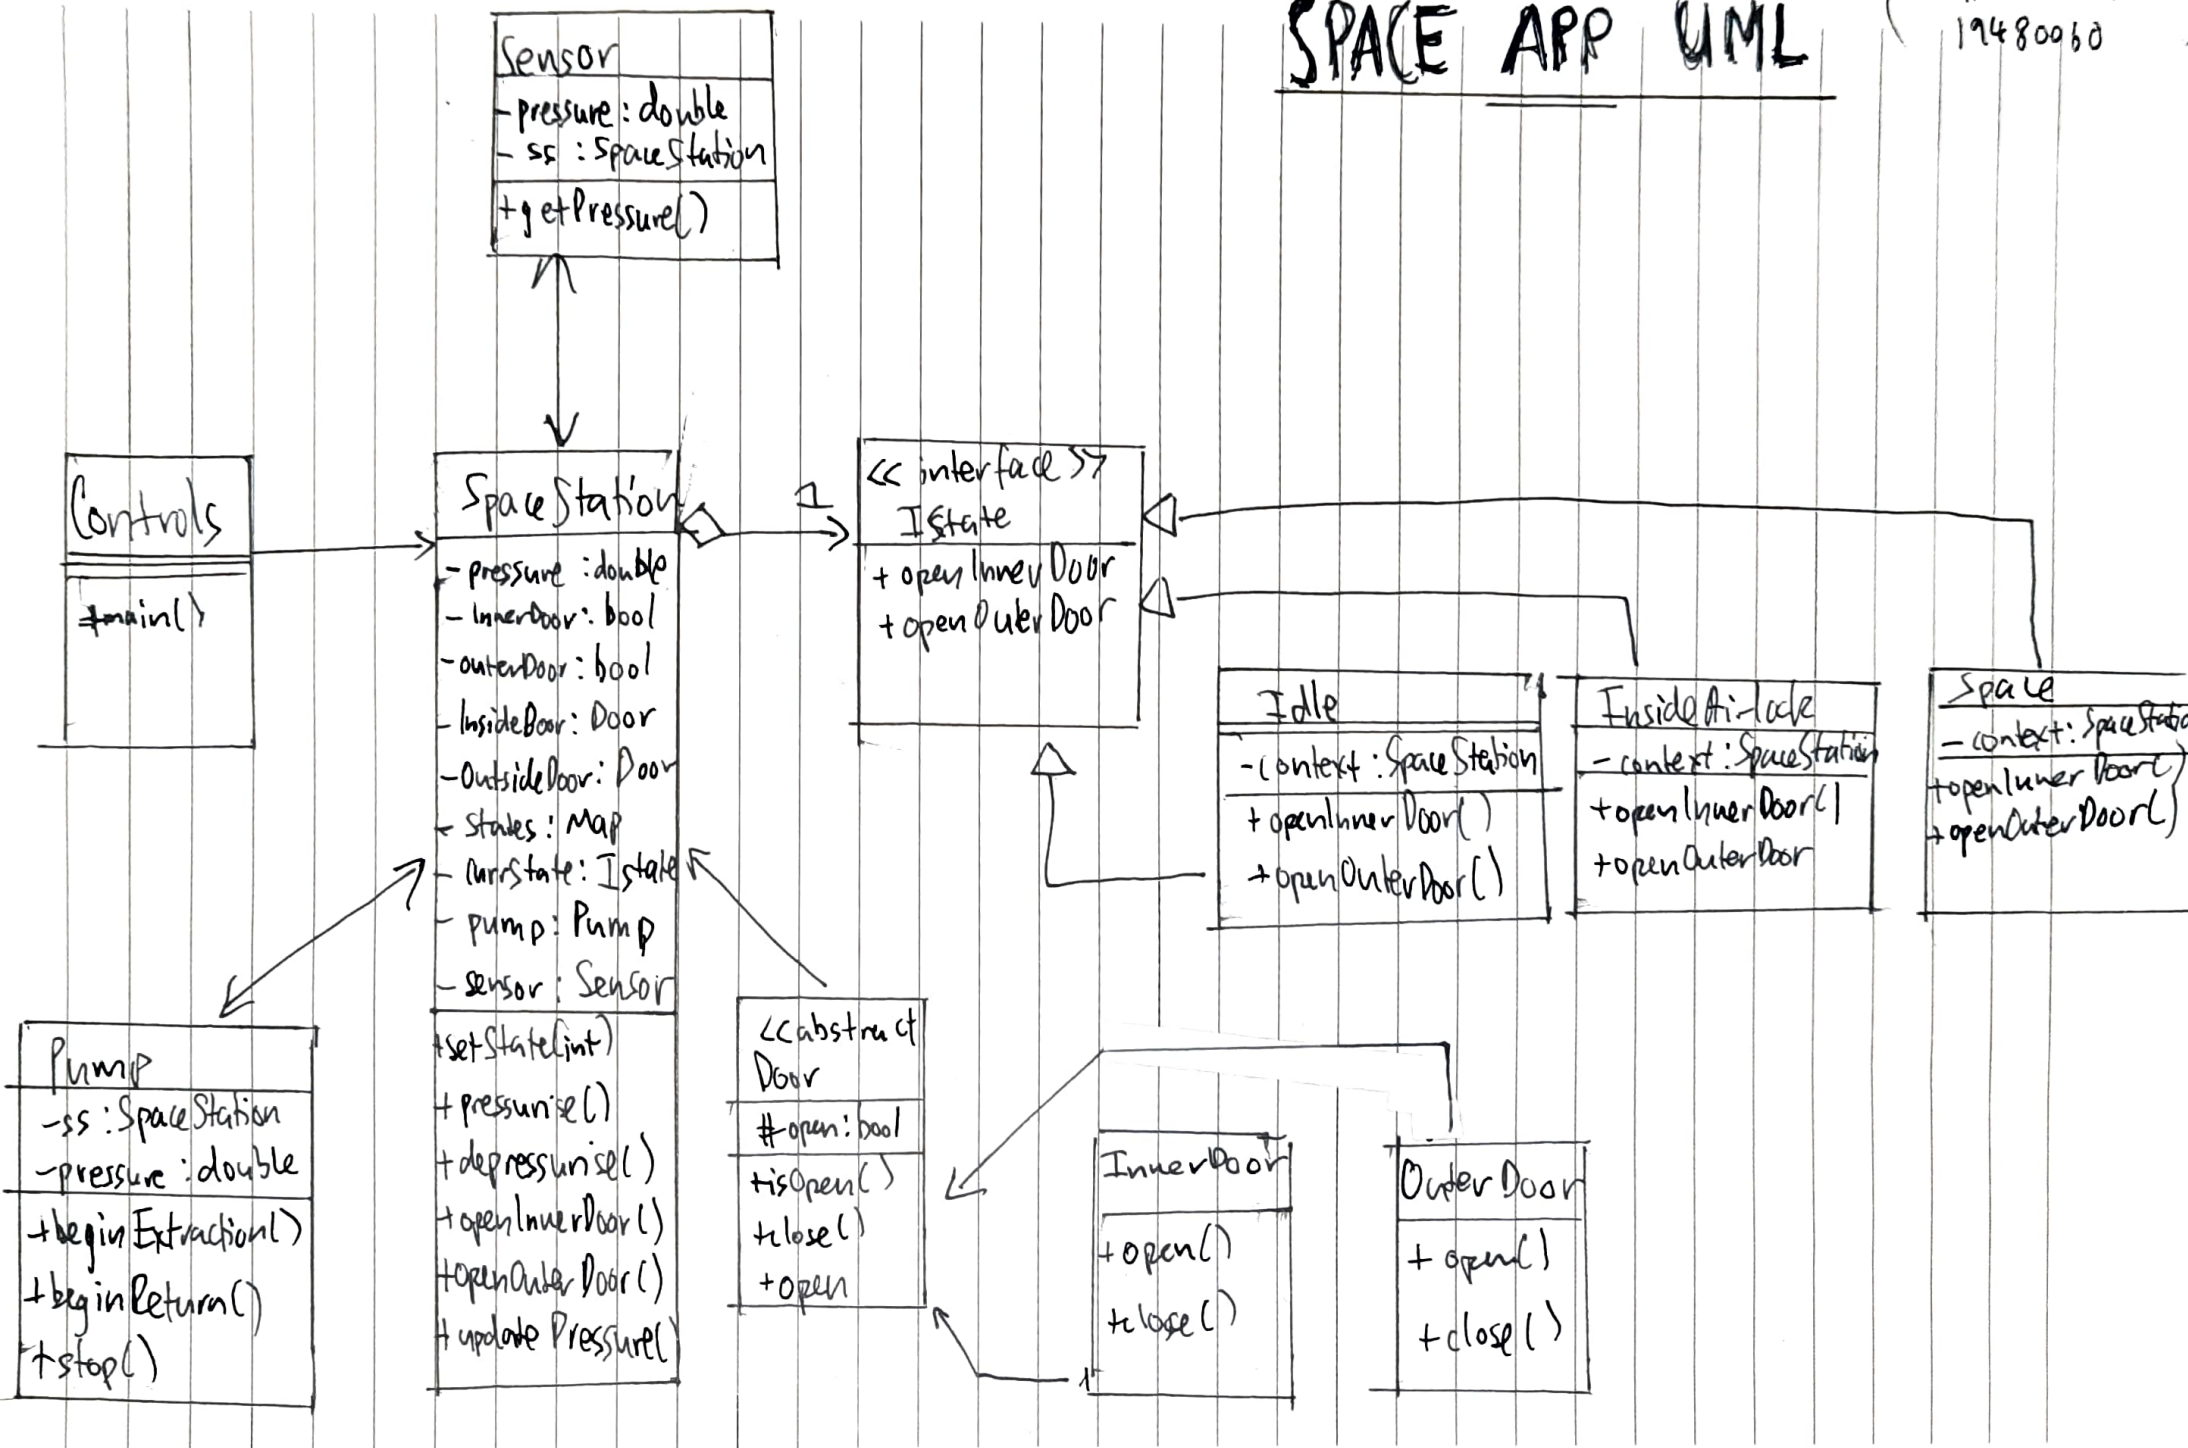 SPACE APP UML
19480060
Sensor
- pressure : double
- ss : SpaceStation
+getPressure()
Controls
+main()
SpaceStation
- pressure : double
- InnerDoor : bool
- outerDoor : bool
- InsideDoor : Door
- OutsideDoor : Door
- States : Map
- currState : Istate
- pump : Pump
- sensor : Sensor
+setState(int)
+ pressurise()
+ depressurise()
+ openInnerDoor()
+openOuterDoor()
+ updatePressure()
1
<< interface >>
IState
+ openInnerDoor
+ openOuterDoor
Idle
- context : SpaceStation
+ openInnerDoor()
+ openOuterDoor()
InsideAirlock
- context : SpaceStation
+ openInnerDoor()
+ openOuterDoor
Space
- context : SpaceStatio
+openInnerDoor()
+openOuterDoor()
Pump
-ss : SpaceStation
-pressure : double
+beginExtraction()
+beginReturn()
+stop()
<<abstract
Door
# open : bool
+isOpen()
+close()
+open
InnerDoor
+open()
+close()
OuterDoor
+ open()
+ close()